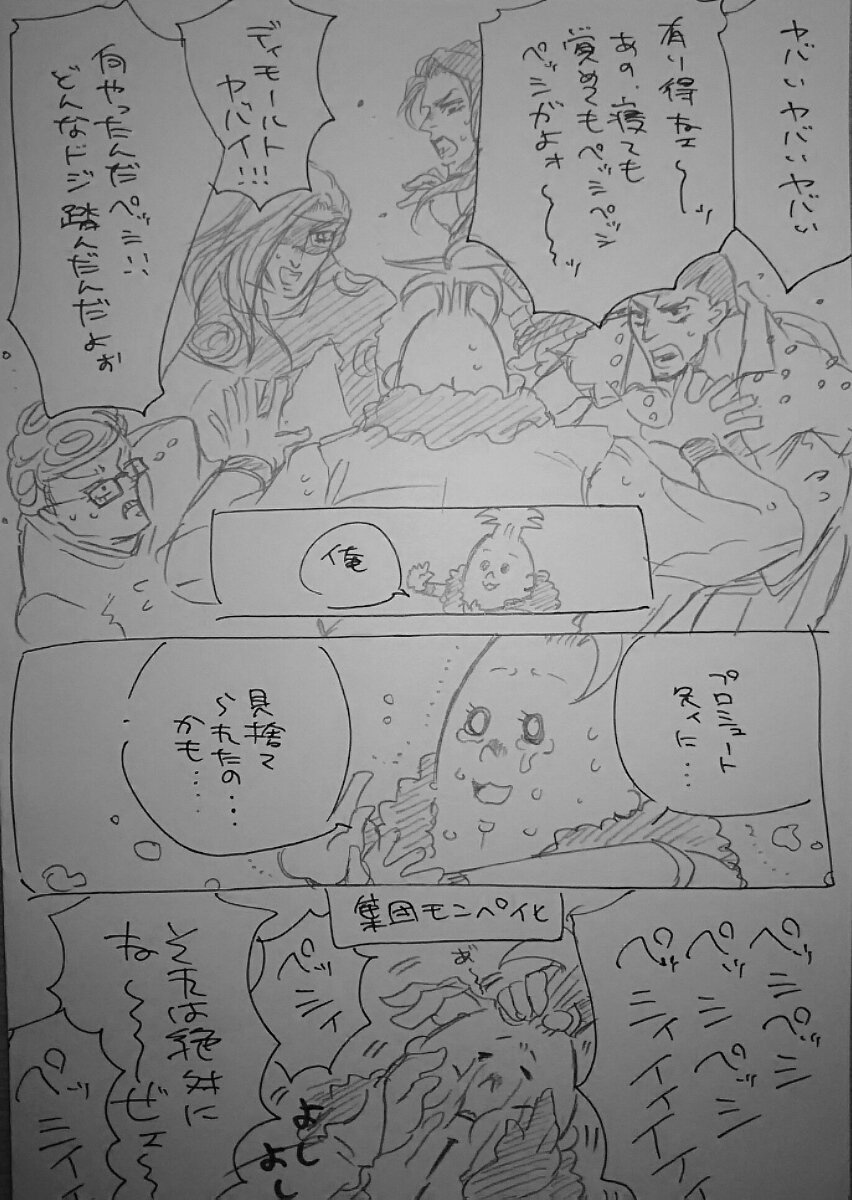 ヤバいヤバいヤバい
有り得ねェ〜ッ
あの、寝ても
覚めてもペッシペッシ
ペッシがよォ〜〜ッ
ディモールト
ヤバイ!!!
何やったんだペッシ!!
どんなドジ踏んだんだよぉ
俺
プロシュート
兄ィに…
見捨て
られたの…
かも…
集団モンペイ化
ペッシペッシ
ペッシペッシ
ペッシィイイイイ
あ゛
ペッシィ
よし
よし
それは絶対に
ね〜〜ぜェ〜
ペッシィィ